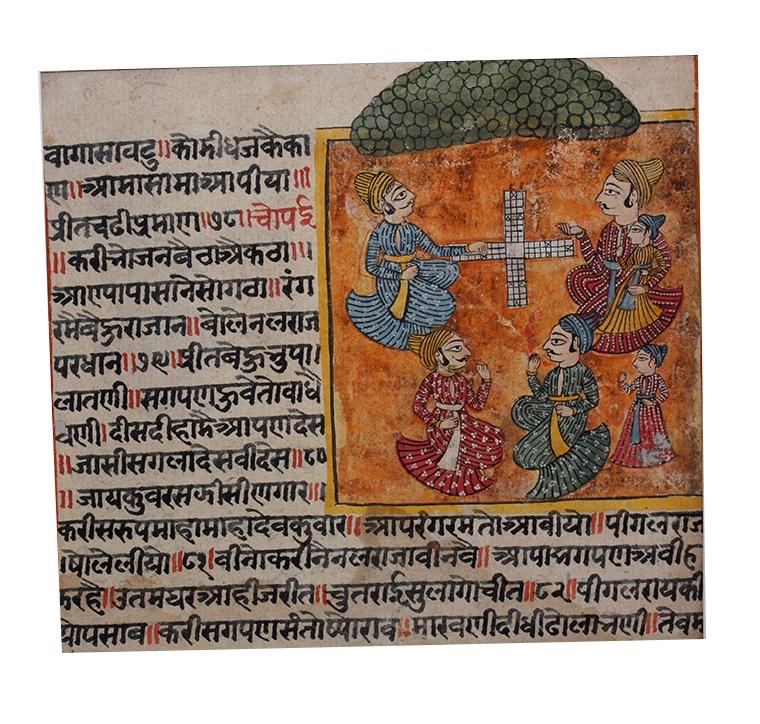 वागासावटु॥कोमीधजकैका
ण॥आमासामाआपीया॥
प्रीतचढीप्रमाण॥७८॥चोपई
॥करीनोजनबैठाऐकठा॥
आएपापासनिसोगठा॥रंग
रमैबैऊराजान॥बोलेनलराज
परधान॥७९॥प्रीतबेऊचुपा
लातणी॥सगपणऊवेतोवाधे
घणी॥दीसदीहाडैआपणदेस
॥जासीसगलादेसवीदेस॥८०
॥जायकुवरसऊीसीणगार॥
करीसरुपमाहामाहादेवकुवार॥आपरंगरमतोआवीयो॥पीगलराज
षोलेलीया॥८१॥वीनोकरीनेनलराजावीनवै॥आपासगपणअवीह
करहै॥उतमघरआहीजरीत॥चुतराईसुलागोचीत॥८२॥पीगलरायकी
योपसाब॥करीसगपणसंतोष्याराव॥मारवणीदीधीढोलानणी॥तेवम